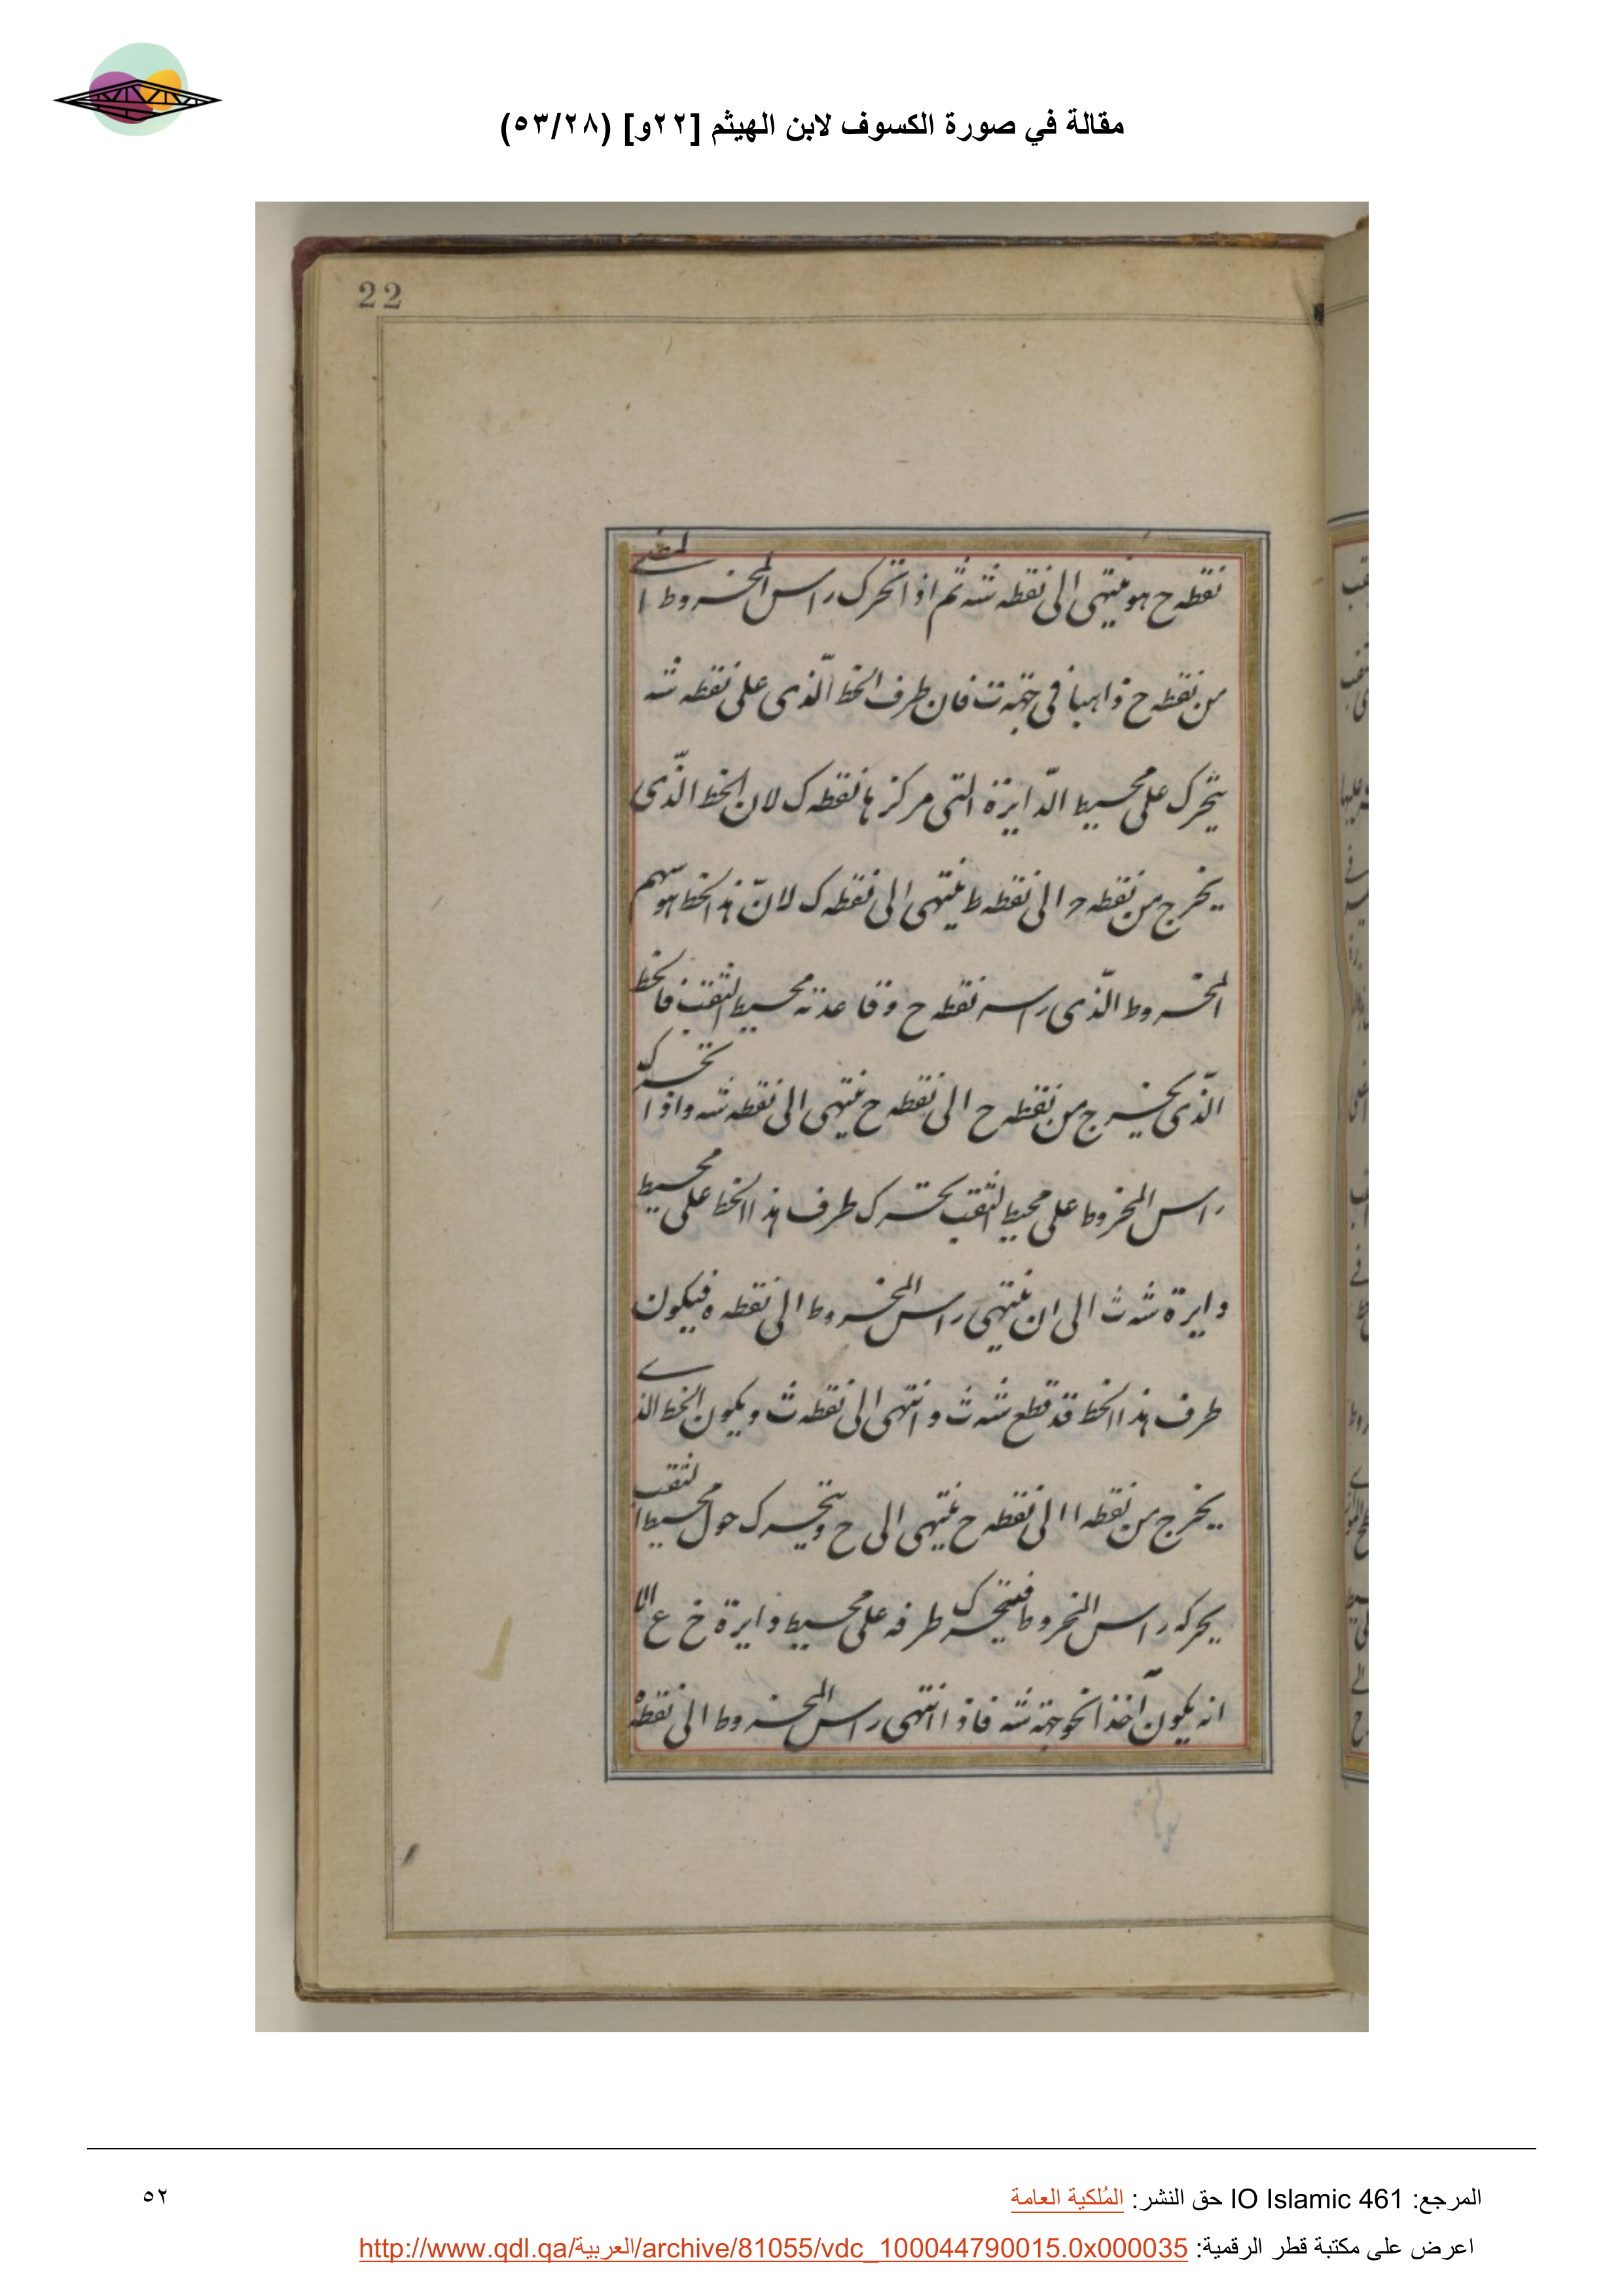 مقالة في صورة الكسوف لابن الهيثم [٢٢و] (٥٣/٢٨)
22
نقطه ح هو ينتهى الى نقطه شه ثم اذا تحرك راس المخروط
من نقطه ح ذاهبا فى جهة ت فان طرف الخط الّذى على نقطه شه
يتحرك على محيط الدّايرة التى مركزها نقطه ك لان الخط الذّى
يخرج من نقطه ح الى نقطه ط ينتهى الى نقطه ك لانّ هذا الخط هو سهم
المخروط الّذى راسه نقطه ح وقاعدته محيط الثقب فالخط
الّذى يخرج من نقطه ح الى نقطه ح ينتهى الى نقطه شه واذا تحرك
راس المخروط على محيط الثقب تحرك طرف هذا الخط على محيط
دايرة شه ث الى ان ينتهى راس المخروط الى نقطه ه فيكون
طرف هذا الخط قد قطع شه ث وانتهى الى نقطه ث ويكون الخط الذى
يخرج من نقطه ا الى نقطه ح ينتهى الى خ ويتحرك حول محيط الثقب
يحركه راس المخروط فيتحرك طرفه على محيط دايرة خ ع الا
انه يكون آخذا نحو جهة شه فاذا انتهى راس المخروط الى نقطة
المرجع: IO Islamic 461 حق النشر: المُلكية العامة
٥٢
اعرض على مكتبة قطر الرقمية: http://www.qdl.qa/العربية/archive/81055/vdc_100044790015.0x000035